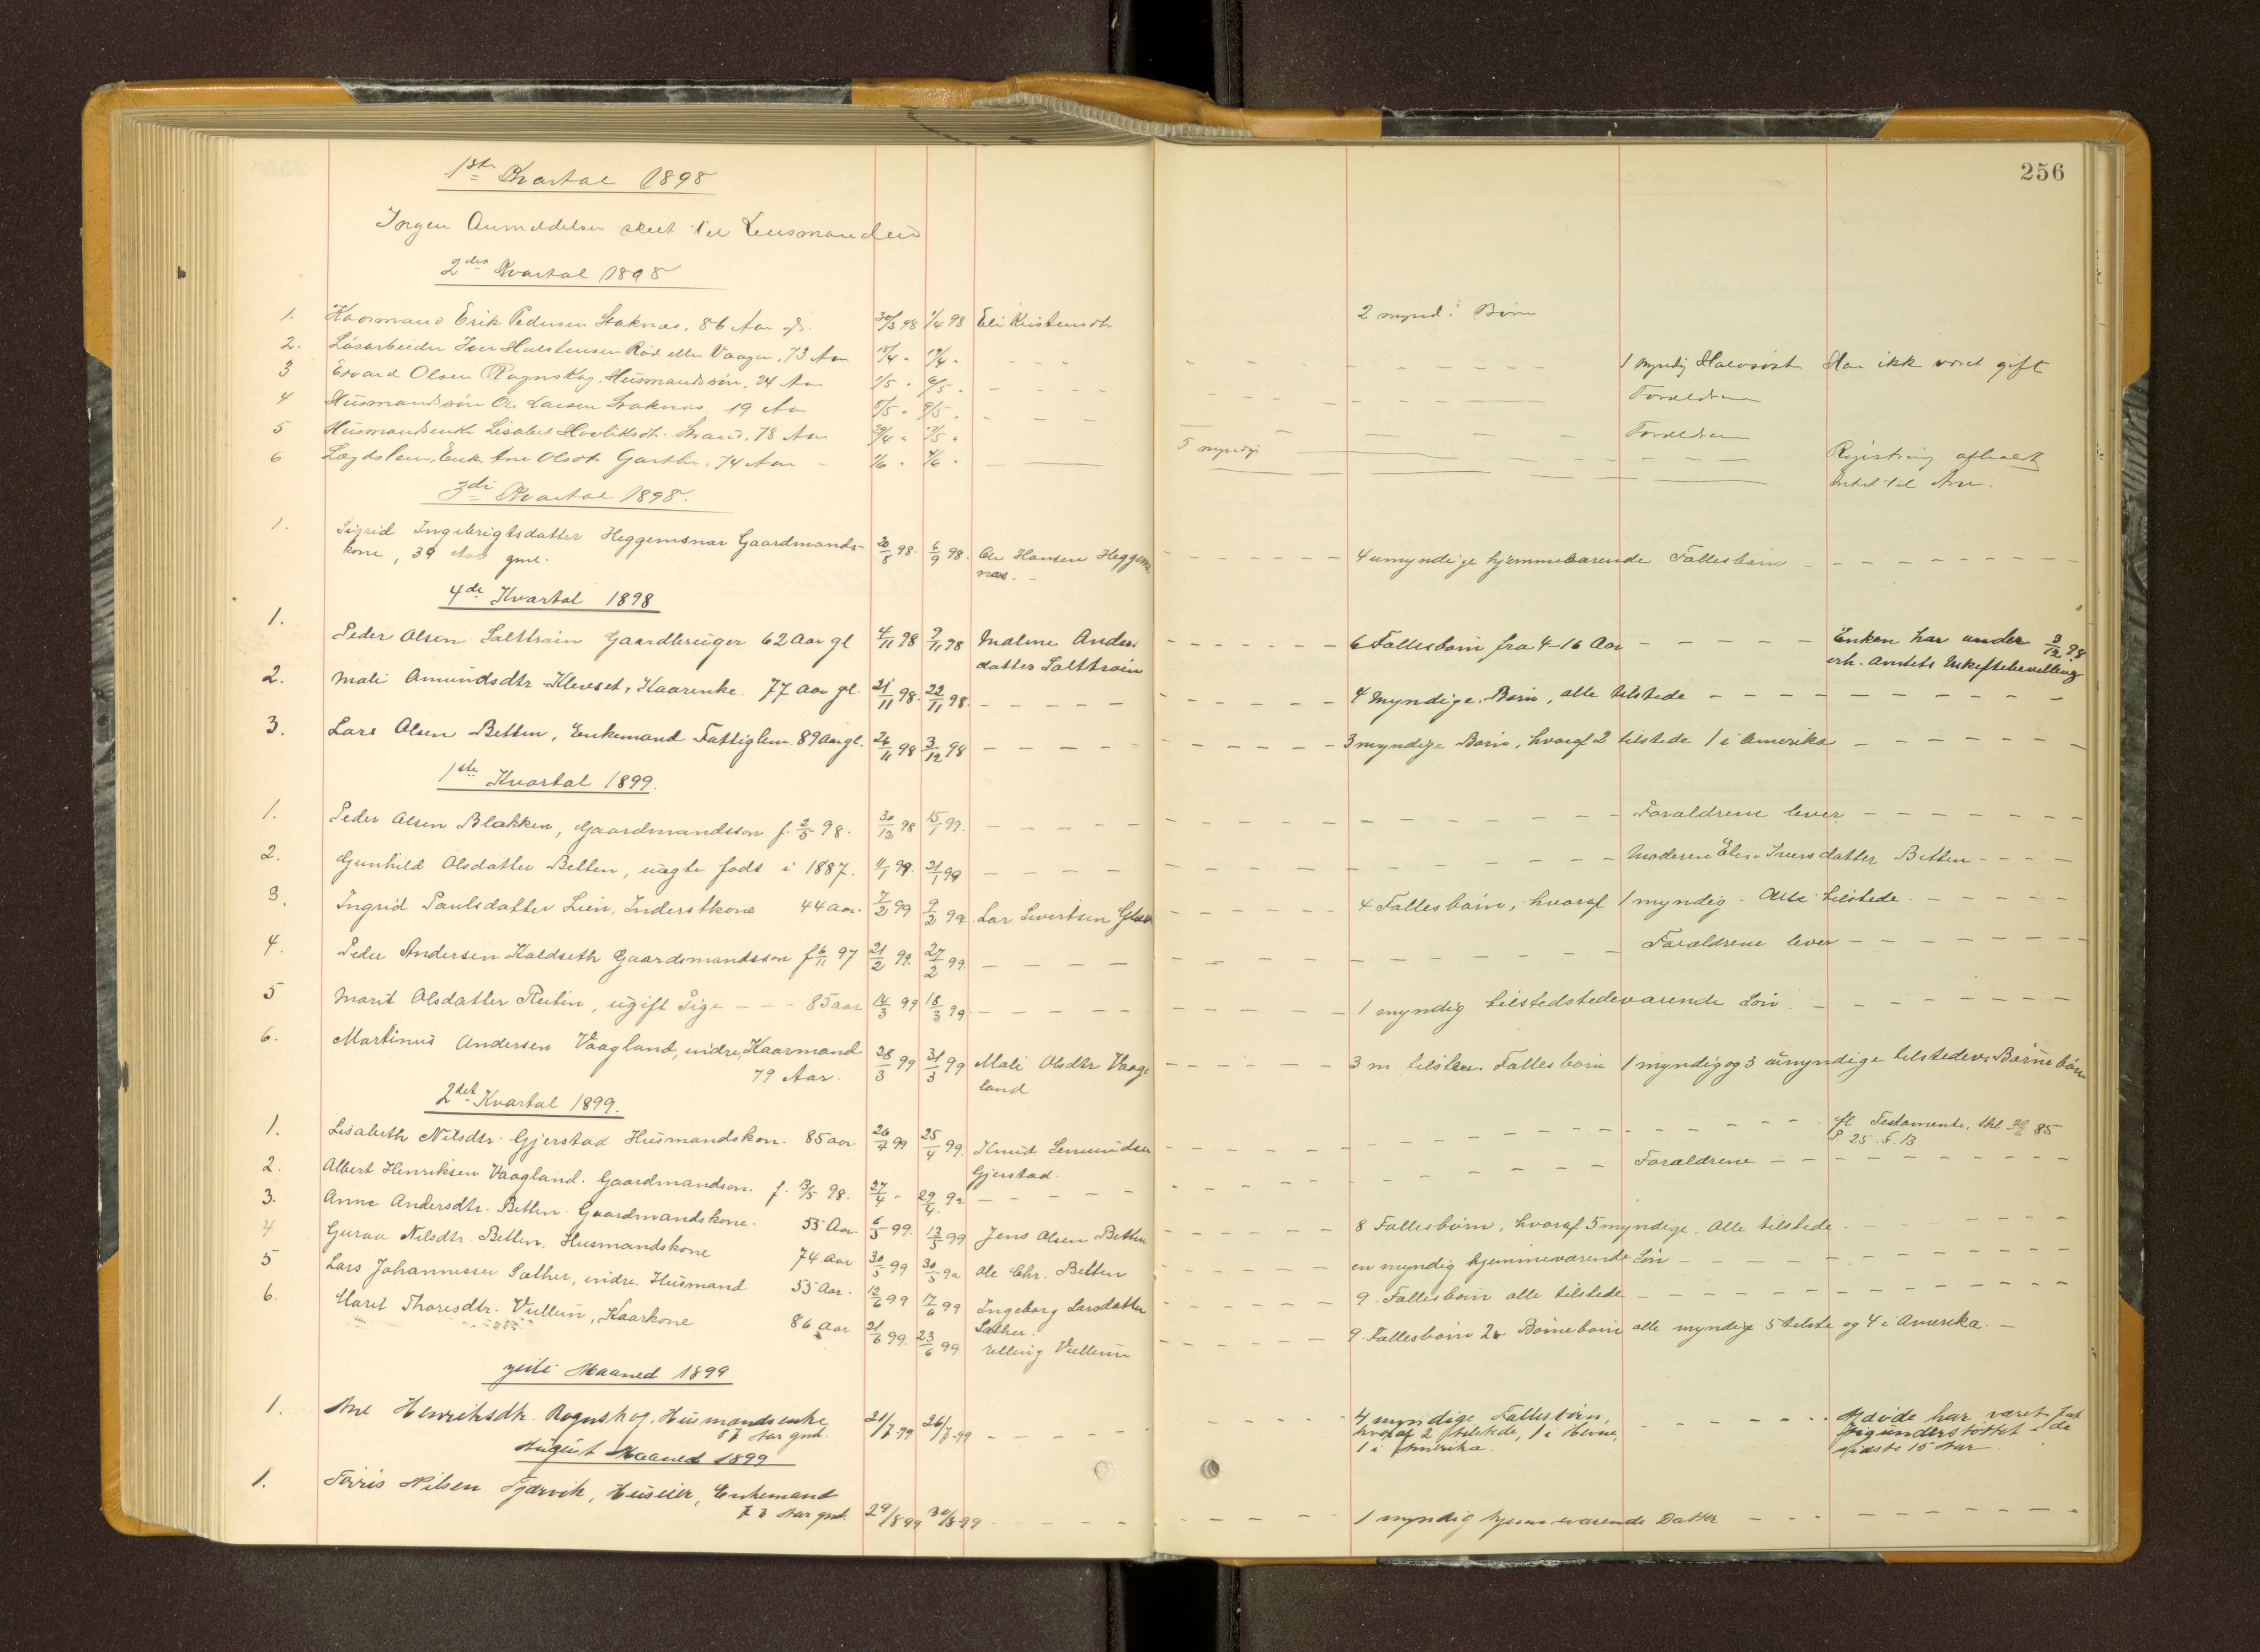 256
1ste Kvartal 1898
Ingen Anmeldelse skeet til Lensmanden
2det Kvartal 1898
1. Kaarmand Erik Pedersen Staknæs, 86 Aar gl. 30/3 98 1/4 98 Eli Kristensdtr 2 mynd: Børn
2. Løsarbeider Iver Halstensen Rød eller Vaagen, 73 Aar 15/4 " 19/4 " - - - 1 myndig Halvsøst. Har ikke været gift
3 Edvard Olsen Rognskog, Husmandssøn, 24 Aar 1/5 " 6/5 " - - - Forældren
4 Husmandssøn Ole Larsen Staknæs 19 Aar 5/5 " 9/5 " - - - Forældren
5 Husmandsenke Lisabet Strand, 78 Aar 29/4 " 17/5 " 5 myndige - - - Registring afholdt
6 Lægdslem, Enke Ane Olsdtr 74 Aar - 1/6 " 4/6 " - - - Intet til Arv.
3die Kvartal 1898.
1. Sigrid Ingebrigtsdatter Heggemsnæs Gaardmands-
kone, 39 Aar gml. 20/8 98. 6/9 98. Ole Hansen Heggems
næs. - - - 4 umyndige hjemmeværende Fællesbørn - - -
4de Kvartal 1898
1. Peder Olsen Salttrøin Gaardbruger 62 Aar gl 4/11 98 9/11 98 Malene Anders
datter Salttrøin - - - 6 Fællesbørn fra 4-16 Aar - - - Enken har under 9/12 98
erh. Amtets Uskiftebevilling
2. Mali Amundsdtr Kleveset, Kaarenke. 77 Aar gl. 21/11 98. 22/11 98. - - - 4 Myndige Børn, alle tilstede - - -
3. Lars Olsen Betten, Enkemand Fattiglem. 89 Aar gl. 26/11 98 3/12 98 - - - 3 myndige Børn, hvoraf 2 tilstede 1 i Amerika - - -
1ste Kvartal 1899.
1. Peder Olsen Blakken, Gaardmandssøn f. 2/5 98. 30/12 98 15/1 99. - - - Forældrene lever - - -
2. Gunhild Olsdatter Betten, uægte født i 1887. 11/1 99. 21/1 99 - - - Moderen Elen Iversdatter Betten - - -
3. Ingrid Paulsdatter Lien, Inderstkone 44 Aar. 7/2 99 9/2 99 Lar Sivertsen - - - 4 Fællesbørn, hvoraf 1 myndig. Alle tilstede. - - -
4. Peder Andersen Kaldseth Gaardsmandssøn f 6/11 97 21/2 99. 27/2 99. - - - Forældrene lever - - -
5 Marit Olsdatter, ugift Pige - - - 85 aar 14/3 99 18/3 99. - - - 1 myndig tilstedstedeværende Søn. - - -
6. Martinus Andersen Vaagland, indre, Kaarmand
79 Aar. 28/3 99 31/3 99 Mali Olsdtr Vaag
land - - - 3 m. tilst. Fællesbørn 1 myndig og 3 umyndige tilstedev. Børnebørn
2det Kvartal 1899.
1. Lisabeth Nilsdtr. Gjerstad Husmandskon. 85 aar 26/4 99 25/4 99. Knud Semundsen
Gjerstad. - - - fl Testamente, thl 21/6 85
P 25. F. 13.
2. Albert Henriksen Vaagland. Gaardmandsøn. f. 13/5 98. 27/4 " 29/4 99 - - - Forældrene - - -
3. Anne Andersdtr. Betten. Gaardmandskone. 55 Aar. 6/5 99. 13/5 99 Jens Olsen Betten - - - 8 Fællesbørn, hvoraf 5 myndige. Alle tilstede. - - -
4 Guraa Nilsdtr. Betten, Husmandskone 74 Aar 30/5 99 30/5 99 Ole Chr. Betten - - - en myndig hjemmeværende Søn - - -
5 Lars Johannessen Sæther, indre. Husmand 55 Aar. 12/6 99 17/6 99 Ingeborg Larsdatter
Sæther. - - - 9. Fællesbørn alle tilstede - - -
6. Marit Thoresdtr. Vullum, Kaarkone 86 Aar 21/6 99. 23/6 99 Vullum - - - 9. Fællesbørn 2 Børnebørn alle myndige 5 tilste og 4 i Amerika. -
Juli Maaned 1899
1. Ane Henriksdtr. Rognskog, Husmandsenke
87 Aar gml. 21/7-99 26/7-99 - - - 4 myndige Fællesbørn,
hvoraf 2 tilstede, 1 i
1 i Amerika. - - - Afdøde har været fat
tigunderstøttet i de
sidste 15 Aar
August Maaned 1899
1. Nilsen Tjærvik, Huseier, Enkemand
73 Aar gml. 29/8 99 30/8-99 - - - 1 myndig hjemmeværende Datter - - -